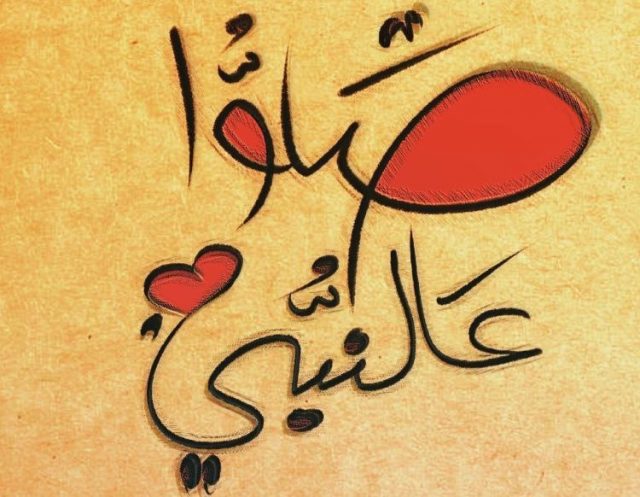 صَلُّوا
عَالنَّبِيّ